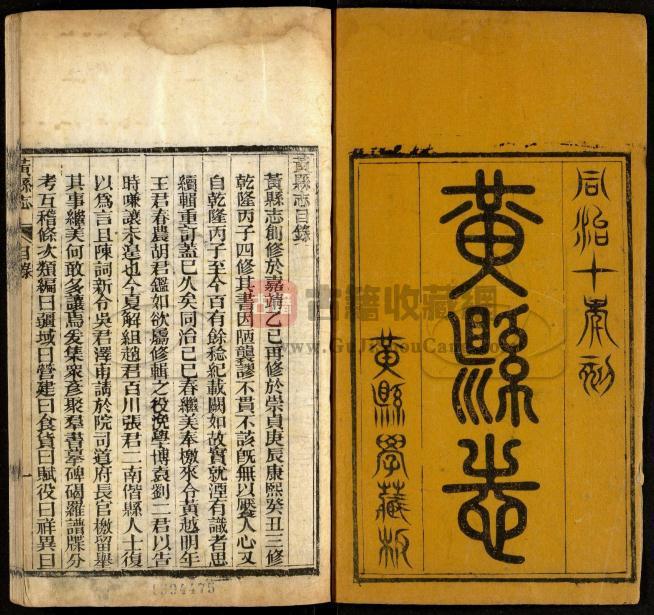 同治十年刻
黃縣志
黃縣學藏板
黃縣志目錄
黃縣志創修於嘉靖乙巳再修於崇貞庚辰康熙癸丑三修
乾隆丙子四修其書因陋襲謬不貫不該旣無以饜人心又
自乾隆丙子至今百有餘稔紀載闕如故實就湮有識者思
續輯重訂蓋已久矣同治己巳春繼美奉檄來令黃越明年
王君春農胡君鑑如欲屬修輯之役浼學博袁劉二君以告
時嗛讓未遑也今夏解組趙君百川張君二南偕縣人士復
以爲言且陳詞新令吳君澤甫請於院司道府長官檄留舉
其事繼美何敢多讓焉爰集衆彥聚羣書摹碑碣羅譜牒分
考互稽條次類編曰疆域曰營建曰食貨曰賦役曰祥異曰
黃縣志
目錄
一
古籍收藏網
www.GuJiShouCang.com
1394475